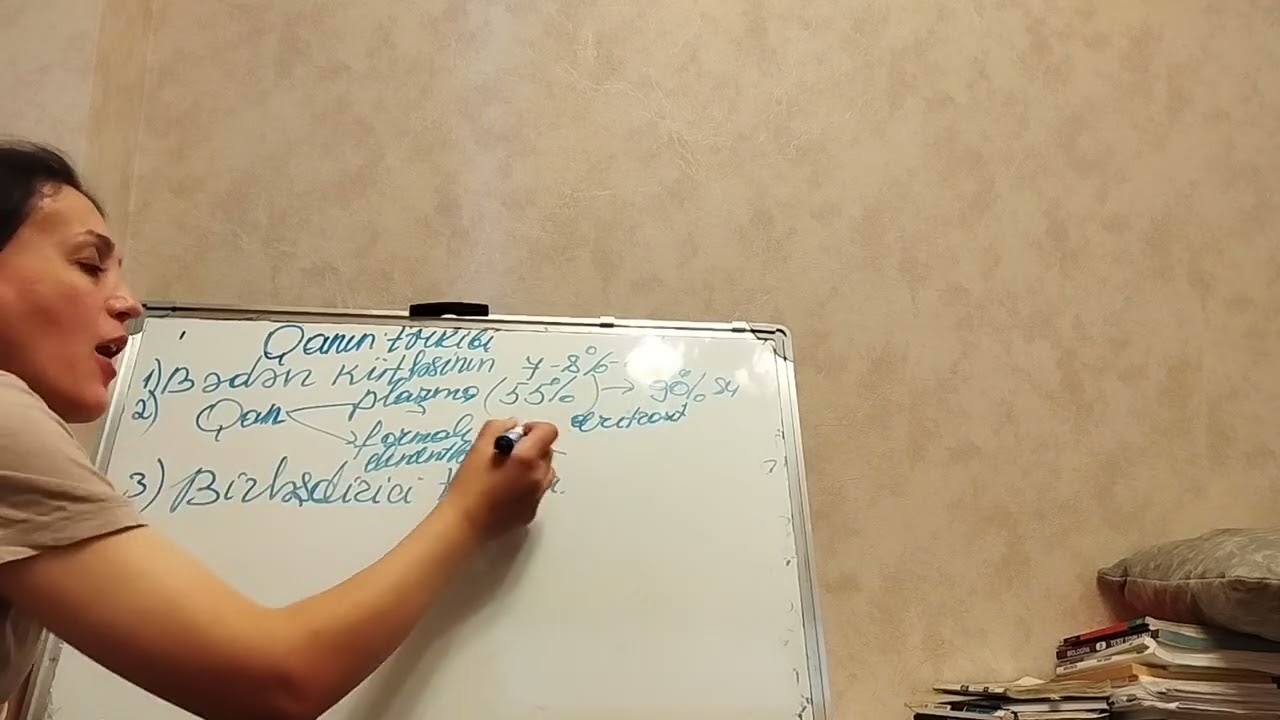 Qanın tərkibi
1) Bədən kütləsinin 7-8%-
2) Qan plazma (55%) → 90% su
formalı eritrosit
elementlər
3) Birləşdirici
BİOLOGİYA
TEST TOPLUSU